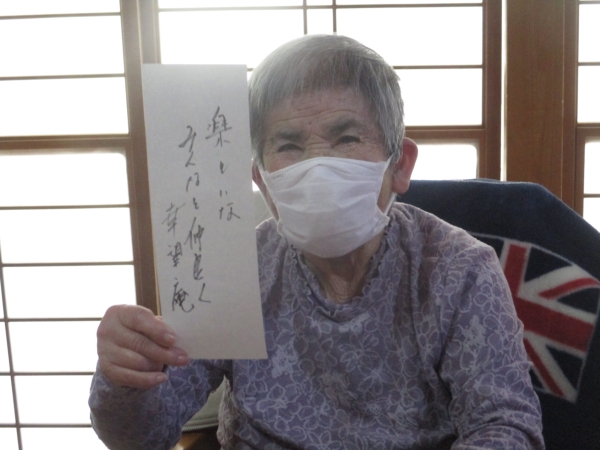 楽しいな
みんなと仲良く
幸望庵